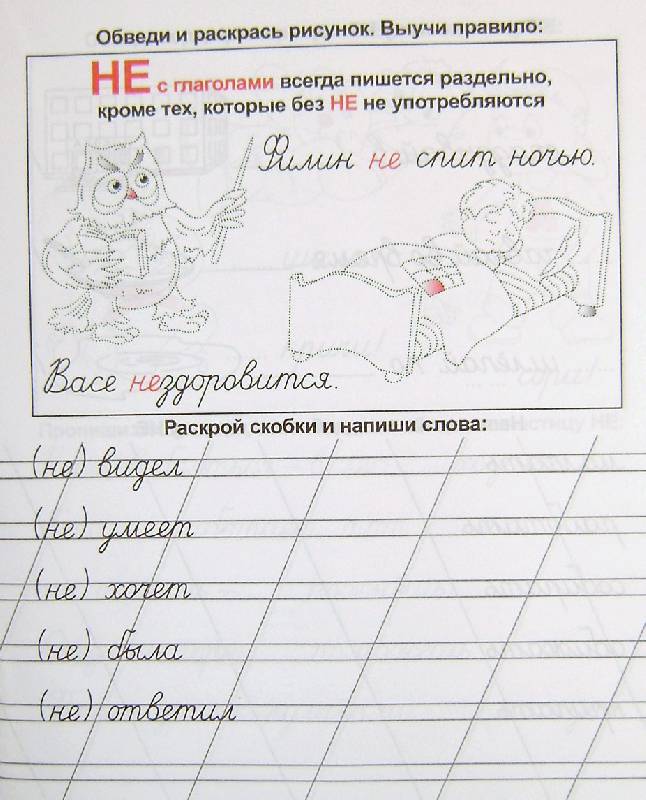 Обведи и раскрась рисунок. Выучи правило:
НЕ с глаголами всегда пишется раздельно,
кроме тех, которые без НЕ не употребляются
Филин не спит ночью.
Васе нездоровится.
Раскрой скобки и напиши слова:
(не) видел
(не) умеет
(не) хочет
(не) была
(не) ответил